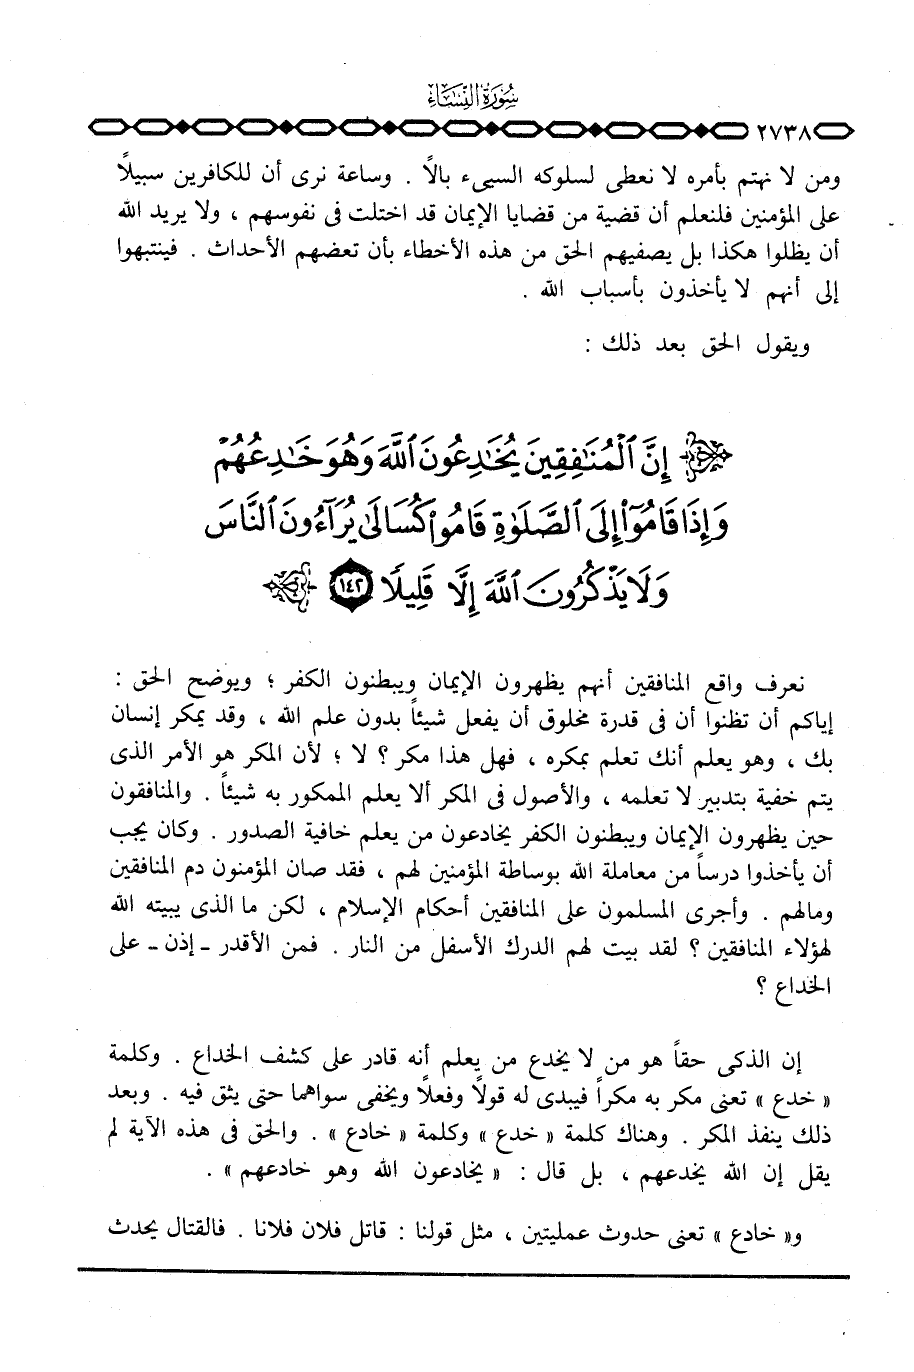 سُورَةُ النِّسَاءِ
٢٧٣٨
ومن لا نهتم بأمره لا نعطى لسلوكه السيىء بالًا . وساعة نرى أن للكافرين سبيلاً
على المؤمنين فلنعلم أن قضية من قضايا الإيمان قد اختلت فى نفوسهم ، ولا يريد الله
أن يظلوا هكذا بل يصفيهم الحق من هذه الأخطاء بأن تعضهم الأحداث . فينتبهوا
إلى أنهم لا يأخذون بأسباب الله .
ويقول الحق بعد ذلك :
إِنَّ ٱلْمُنَٰفِقِينَ يُخَٰدِعُونَ ٱللَّهَ وَهُوَ خَٰدِعُهُمْ
وَإِذَا قَامُوٓا۟ إِلَى ٱلصَّلَوٰةِ قَامُوا۟ كُسَالَىٰ يُرَآءُونَ ٱلنَّاسَ
وَلَا يَذْكُرُونَ ٱللَّهَ إِلَّا قَلِيلًا ١٤٢
نعرف واقع المنافقين أنهم يظهرون الإيمان ويبطنون الكفر ؛ ويوضح الحق :
إياكم أن تظنوا أن فى قدرة مخلوق أن يفعل شيئاً بدون علم الله ، وقد يمكر إنسان
بك ، وهو يعلم أنك تعلم بمكره ، فهل هذا مكر ؟ لا ؛ لأن المكر هو الأمر الذى
يتم خفية بتدبير لا تعلمه ، والأصول فى المكر ألا يعلم الممكور به شيئاً . والمنافقون
حين يظهرون الإيمان ويبطنون الكفر يخادعون من يعلم خافية الصدور . وكان يجب
أن يأخذوا درساً من معاملة الله بوساطة المؤمنين لهم ، فقد صان المؤمنون دم المنافقين
ومالهم . وأجرى المسلمون على المنافقين أحكام الإسلام ، لكن ما الذى يبيته الله
لهؤلاء المنافقين ؟ لقد بيت لهم الدرك الأسفل من النار . فمن الأقدر ـ إذن ـ على
الخداع ؟
إن الذكى حقاً هو من لا يخدع من يعلم أنه قادر على كشف الخداع . وكلمة
« خدع » تعنى مكر به مكراً فيبدى له قولاً وفعلاً ويخفى سواهما حتى يثق فيه . وبعد
ذلك ينفذ المكر . وهناك كلمة « خدع » وكلمة « خادع » . والحق فى هذه الآية لم
يقل إن الله يخدعهم ، بل قال : « يخادعون الله وهو خادعهم » .
و« خادع » تعنى حدوث عمليتين ، مثل قولنا : قاتل فلان فلانا . فالقتال يحدث